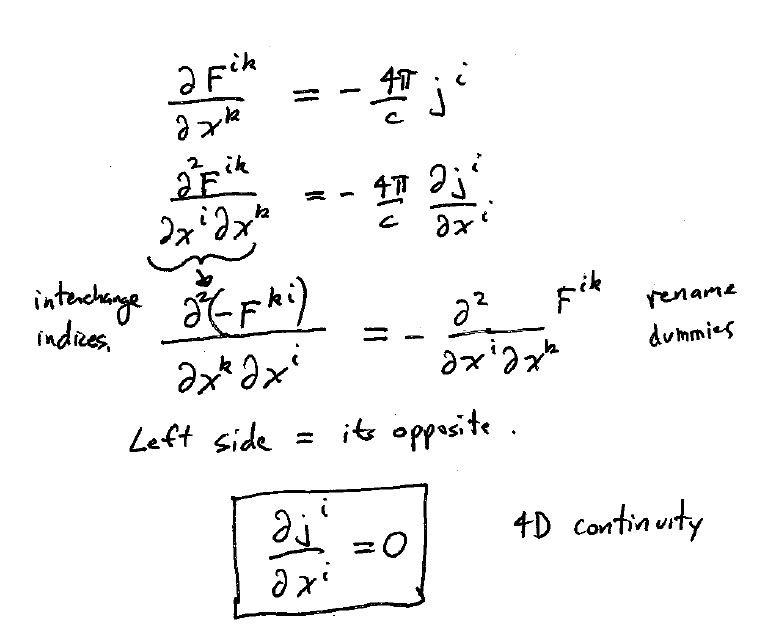 ∂F^{ik}/∂x^k = - 4π/c j^i
∂²F^{ik}/∂x^i∂x^k = - 4π/c ∂j^i/∂x^i
interchange indices, ∂²(-F^{ki})/∂x^k∂x^i = - ∂²/∂x^i∂x^k F^{ik} rename dummies
Left side = its opposite.
∂j^i/∂x^i = 0 4D continuity